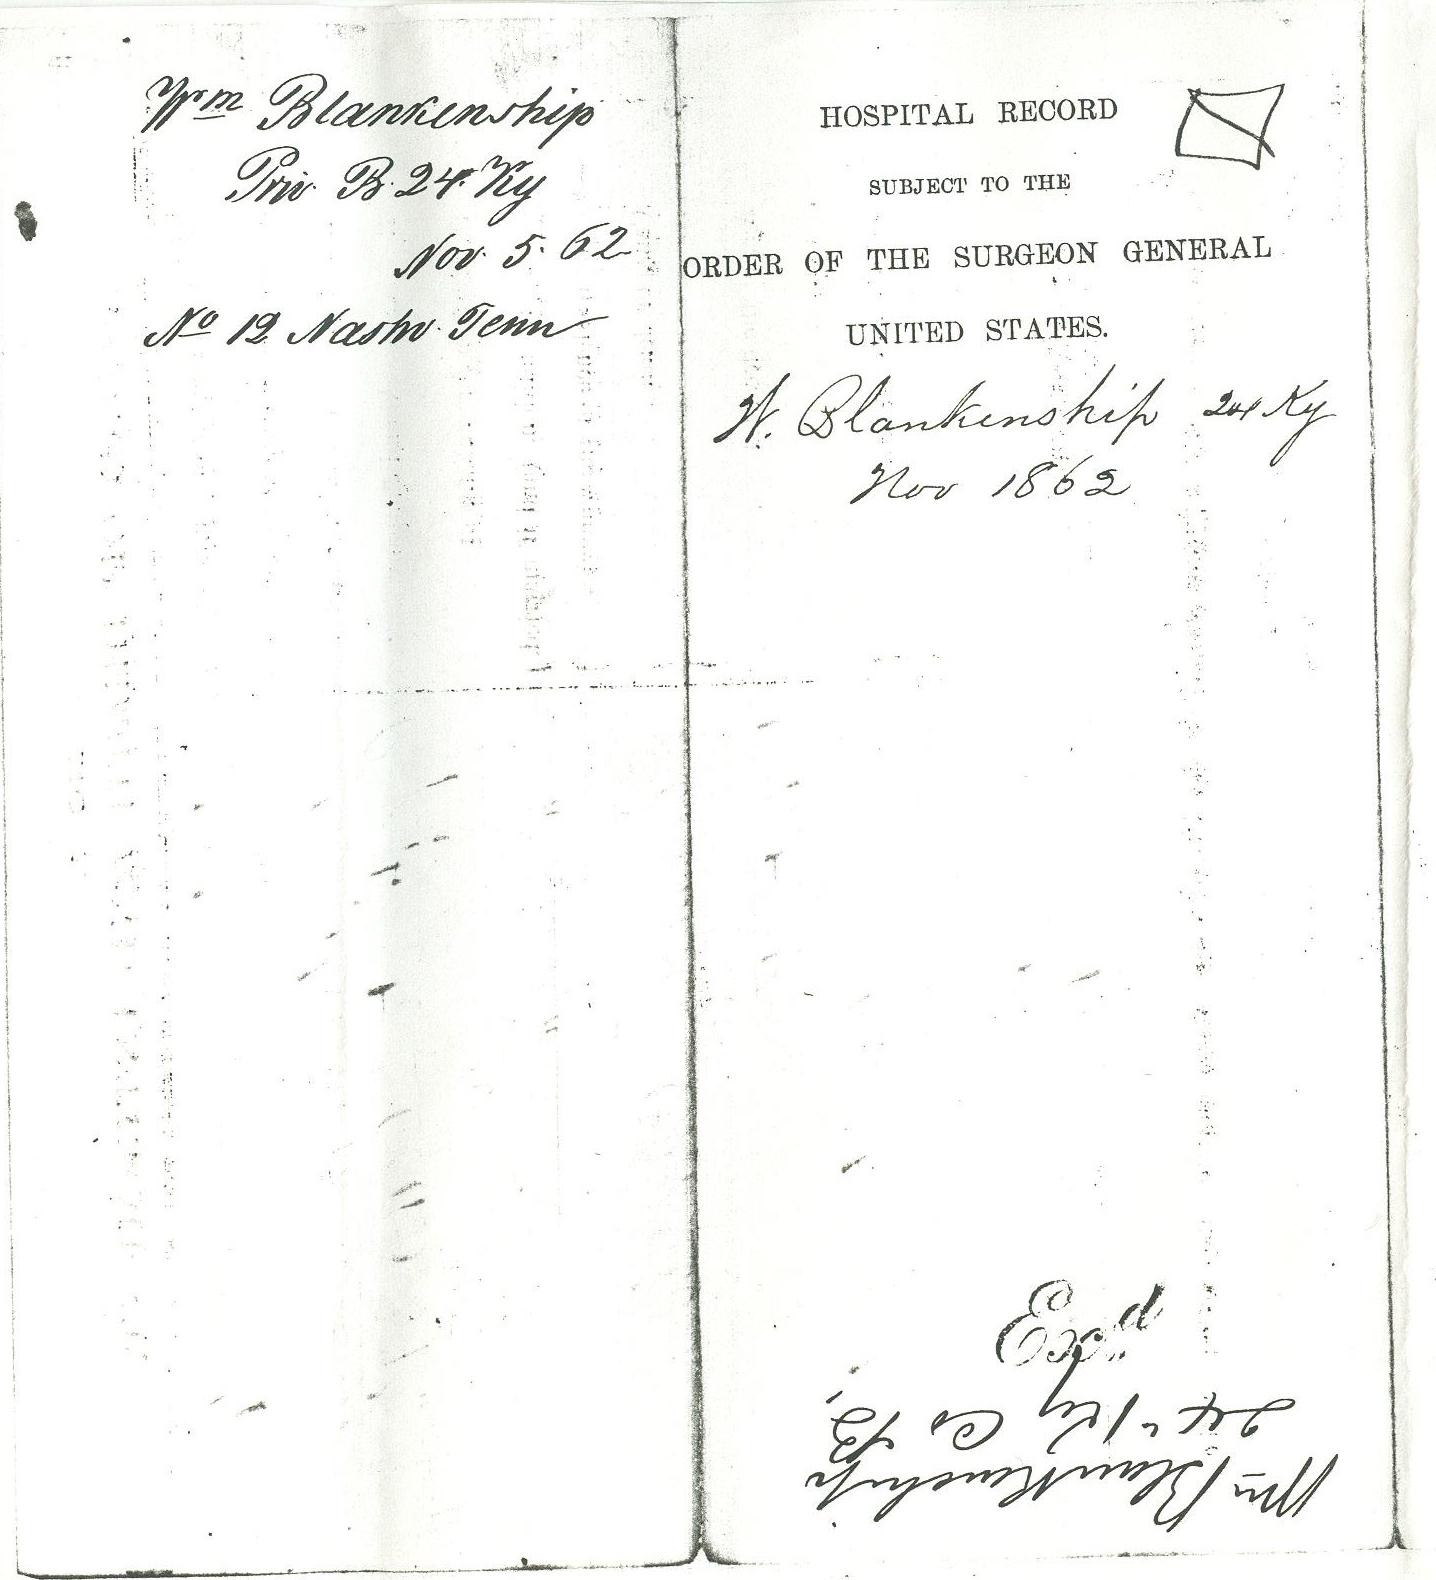 Wm Blankenship
Priv. B. 24. Ky
Nov. 5. 62
No 12 Nashv. Tenn
HOSPITAL RECORD
SUBJECT TO THE
ORDER OF THE SURGEON GENERAL
UNITED STATES.
W. Blankenship 24 Ky
Nov 1862
Exd
Wm Blankenship
24" Ky Co B,